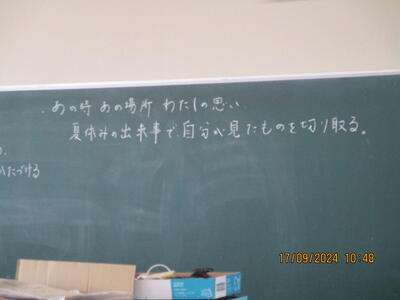 ・あの時 あの場所 わたしの思い
夏休みの出来事で、自分が見たものを切り取る。
17/09/2024 10:48